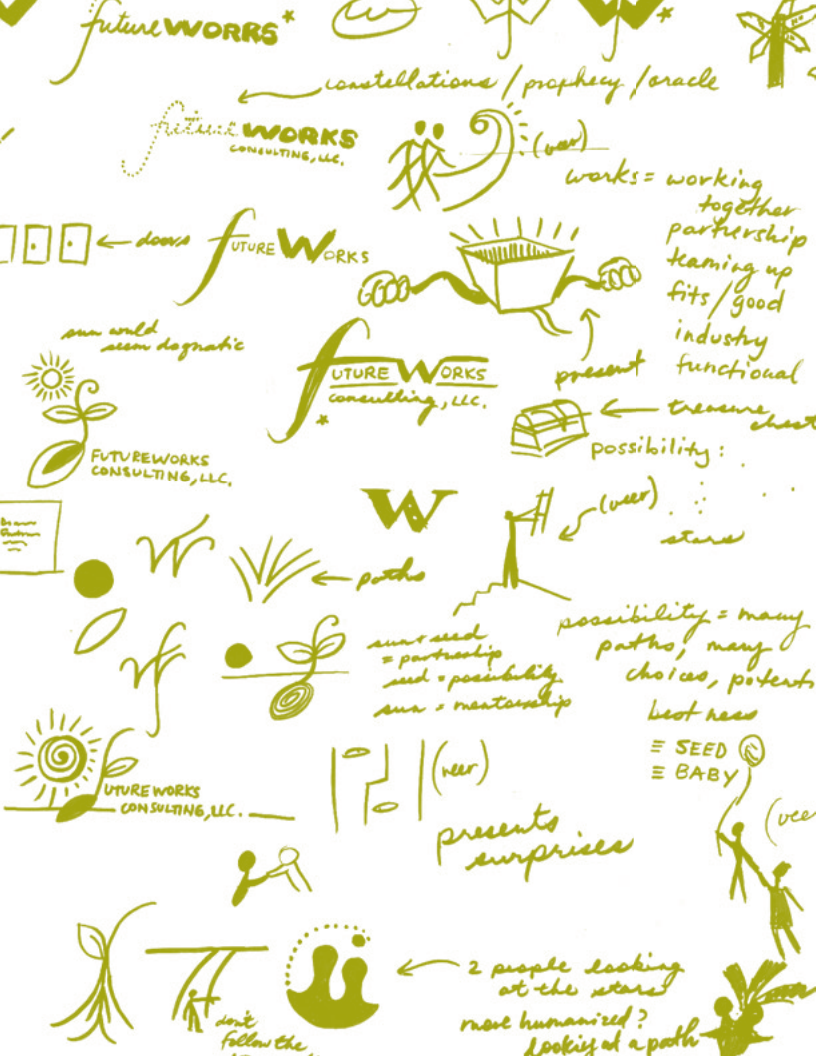 futureWORKS
constellations / prophecy / oracle
future WORKS
CONSULTING, LLC.
(veer)
works = working
together
partnership
teaming up
fits / good
industry
functional
doors
FUTURE WORKS
sun would
seem dogmatic
FUTURE WORKS
consulting, LLC.
present
treasure
chest
possibility:
FUTUREWORKS
CONSULTING, LLC.
W
(veer)
stars
W
paths
possibility = many
paths, many
choices,
best ness
wf
sun + seed
= partnership
seed = possibility
sun = mentorship
≡ SEED
≡ BABY
FUTUREWORKS
CONSULTING, LLC.
(veer)
presents
surprises
2 people looking
at the stars
more humanized?
looking at a path
don't
follow the